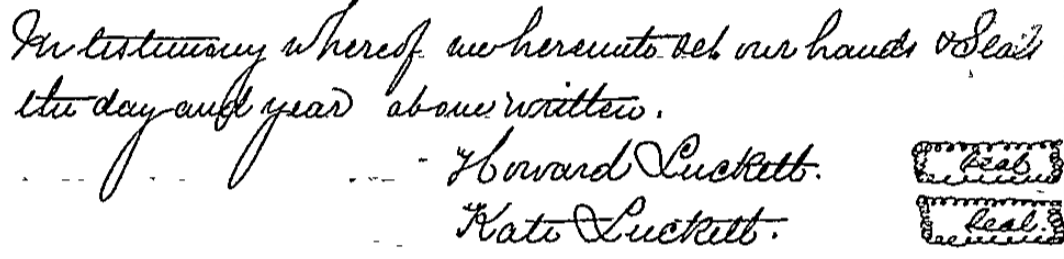 In testimony whereof we hereunto set our hands & Seals
the day and year above written.
Howard Luckett. Seal
Kate Luckett. Seal.